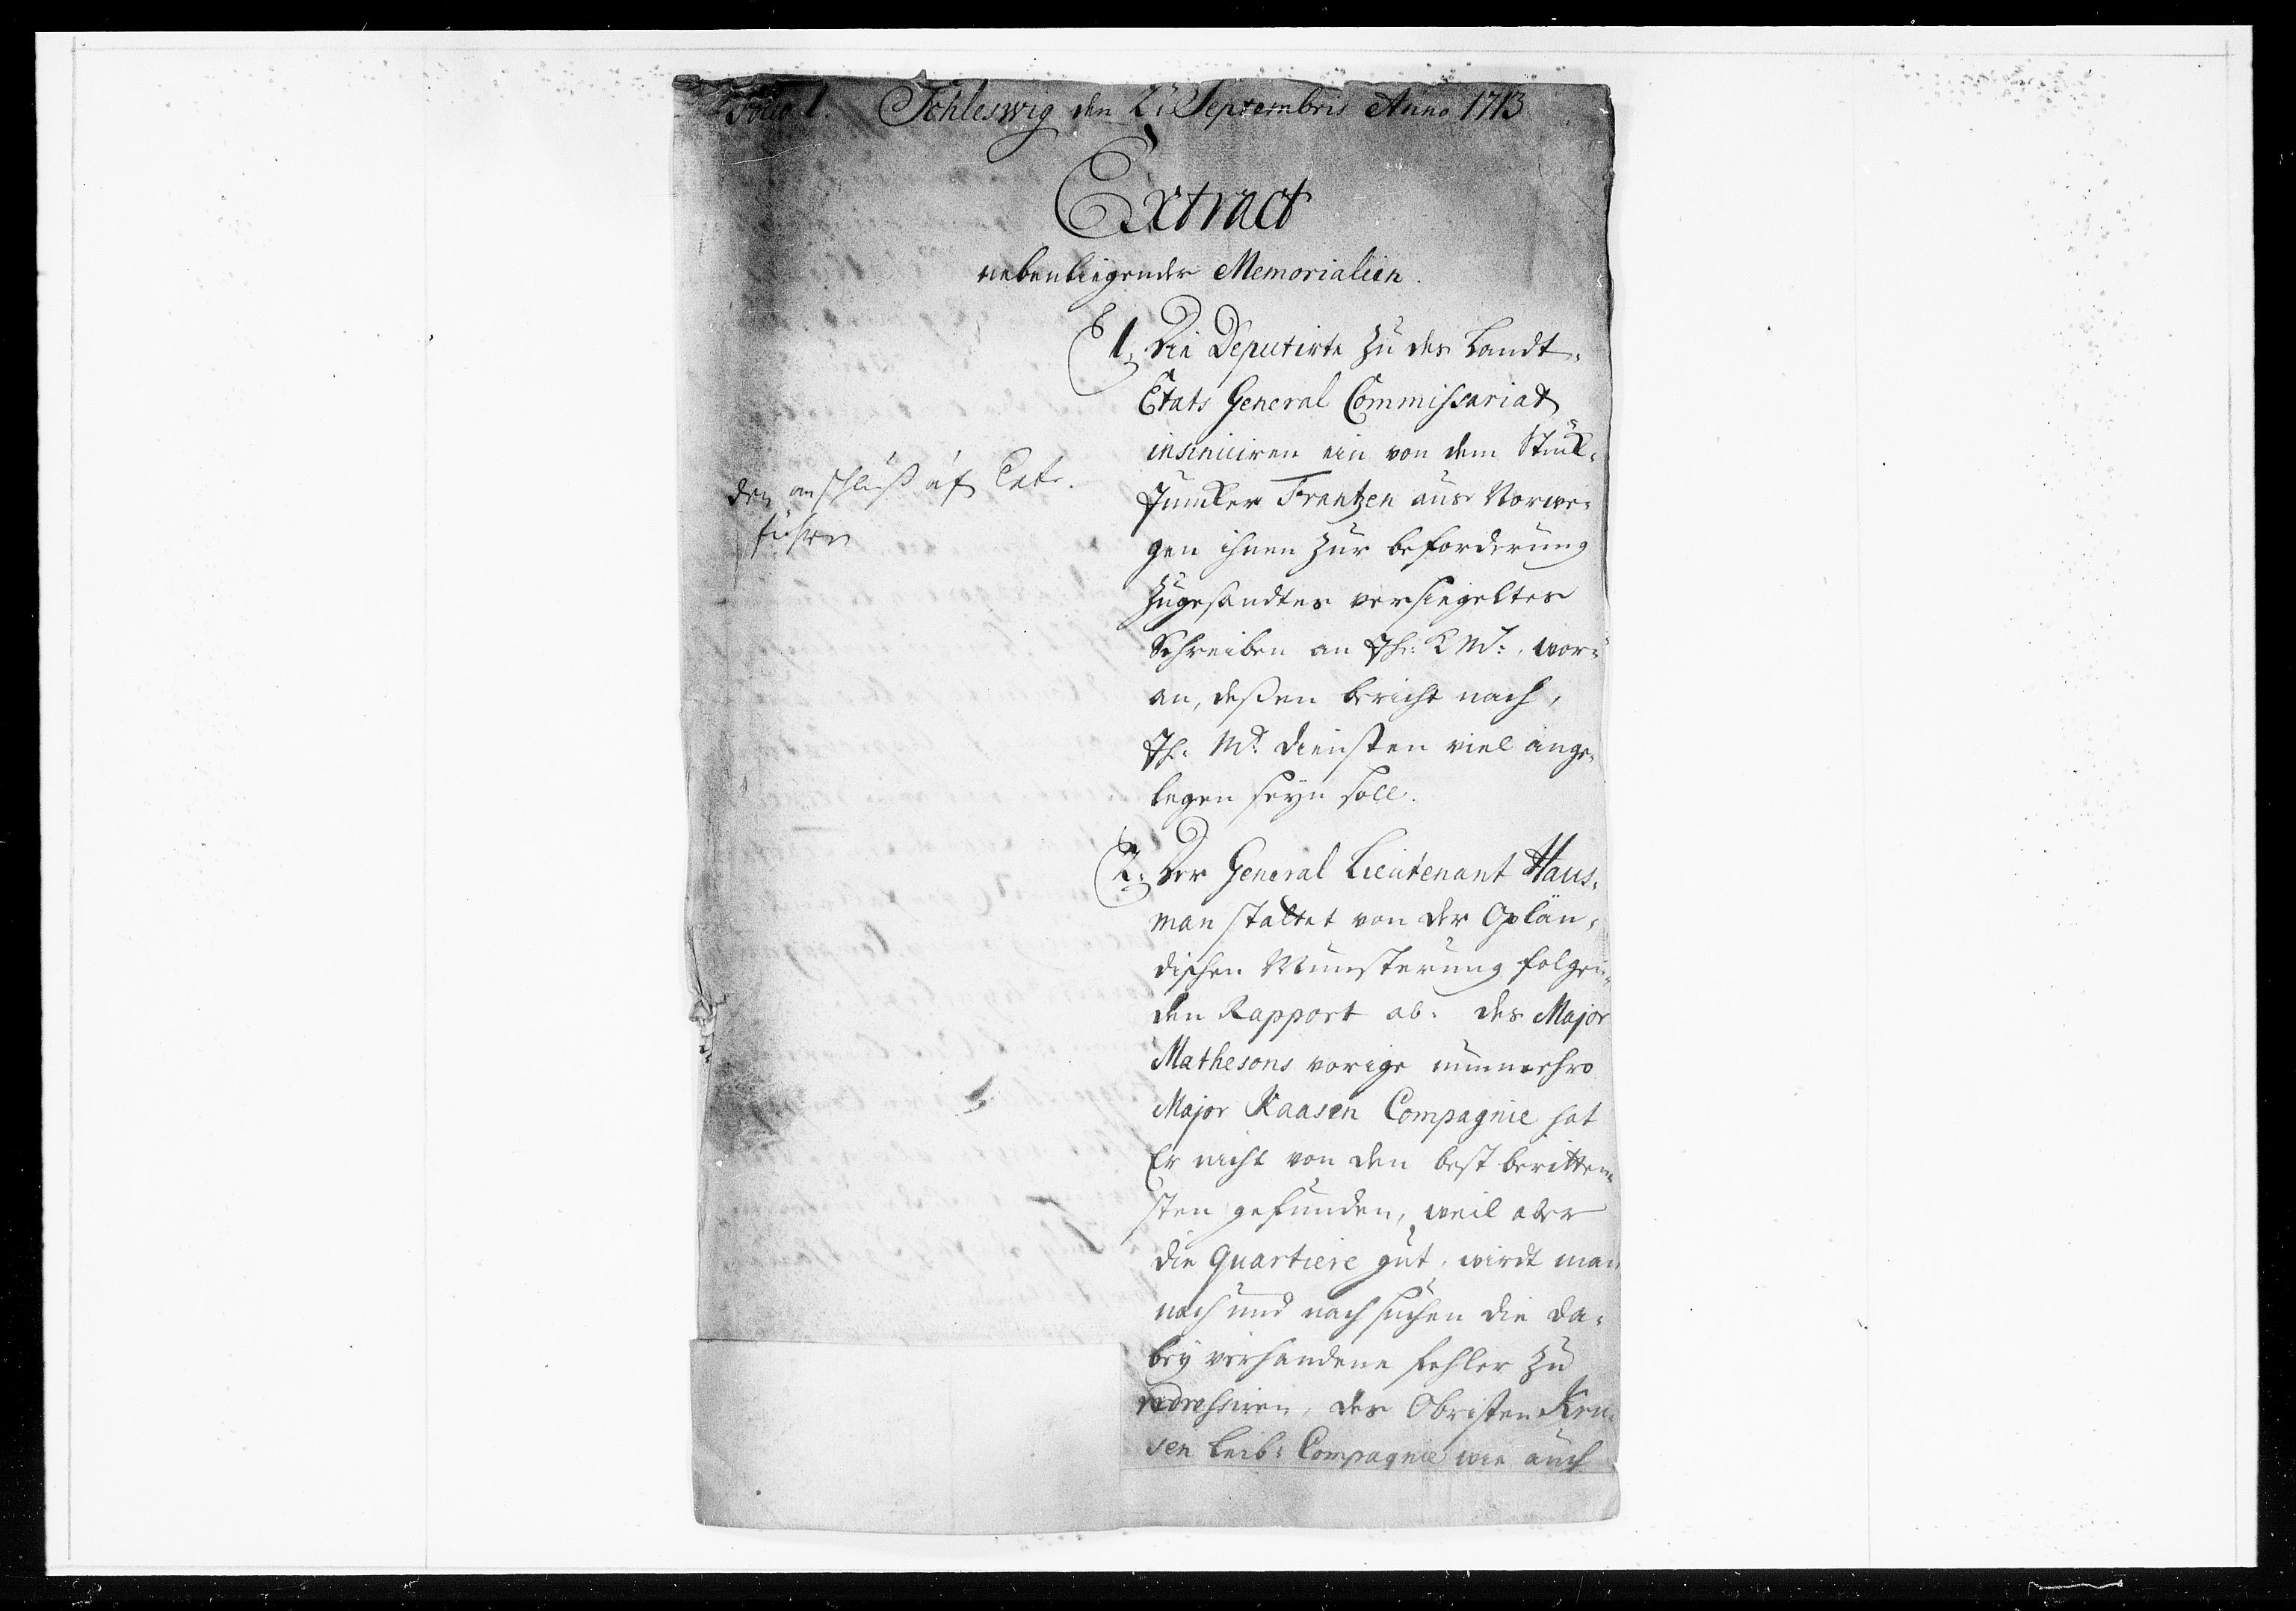 Folio 1. Schleswig den 21 Septembris Anno 1713
Extract
nebenliegender Memorialien.
1. Die Deputirte zu des Landt-
Etats General Commissariat
insinuiren ein von dem Stück-
Junker Frantzen aus Norwe-
gen ihnen zur beforderung
zugesandtes versiegeltes
Schreiben an Ih: K M:, wor-
an, deßen bericht nach,
Ih: Mt: diensten viel ange-
legen seyn soll.
den anschluß auf
führen
2. Der General Lieutenant Haus-
man stattet von der Oplän-
dischen Munsterung folgen-
den Rapport ab. des Major
Mathesons vorige nunmehro
Major Kaasen Compagnie hat
Er nicht von den best beritten-
sten gefunden, weil aber
die Quartiere gut, wirdt man
nach und nach suchen die da-
bey vorhandene fehler zu
redressiren, des Obristen Kru-
sen Leib: Compagnie wie auch